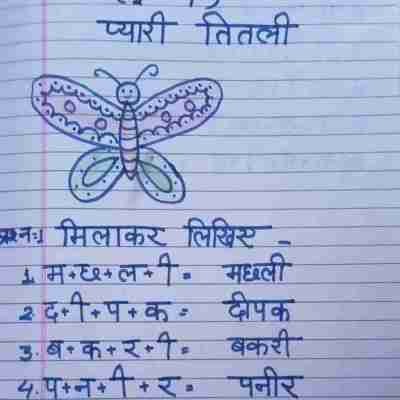 प्यारी तितली
प्रश्न:1 मिलाकर लिखिए -
1. म+छ+ल+ी = मछली
2. द+ी+प+क = दीपक
3. ब+क+र+ी = बकरी
4. प+न+ी+र = पनीर